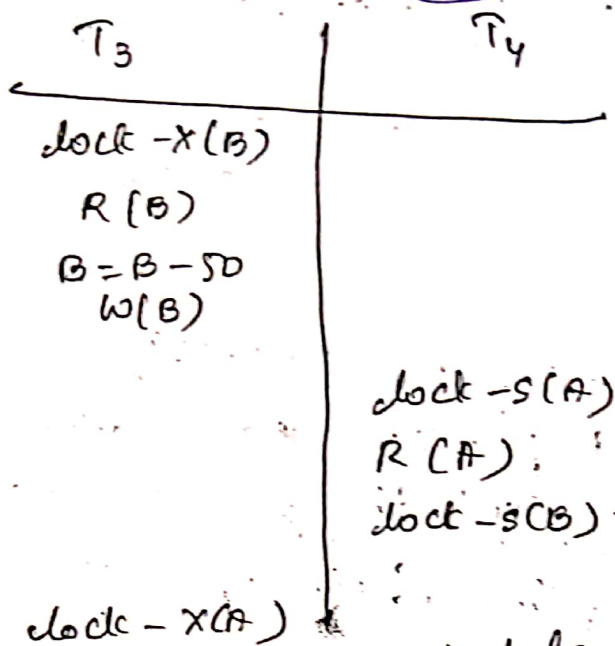 T3 T4
lock -X(B)
R(B)
B = B - 50
W(B)
lock -S(A)
R(A)
lock -S(B)
lock - X(A)